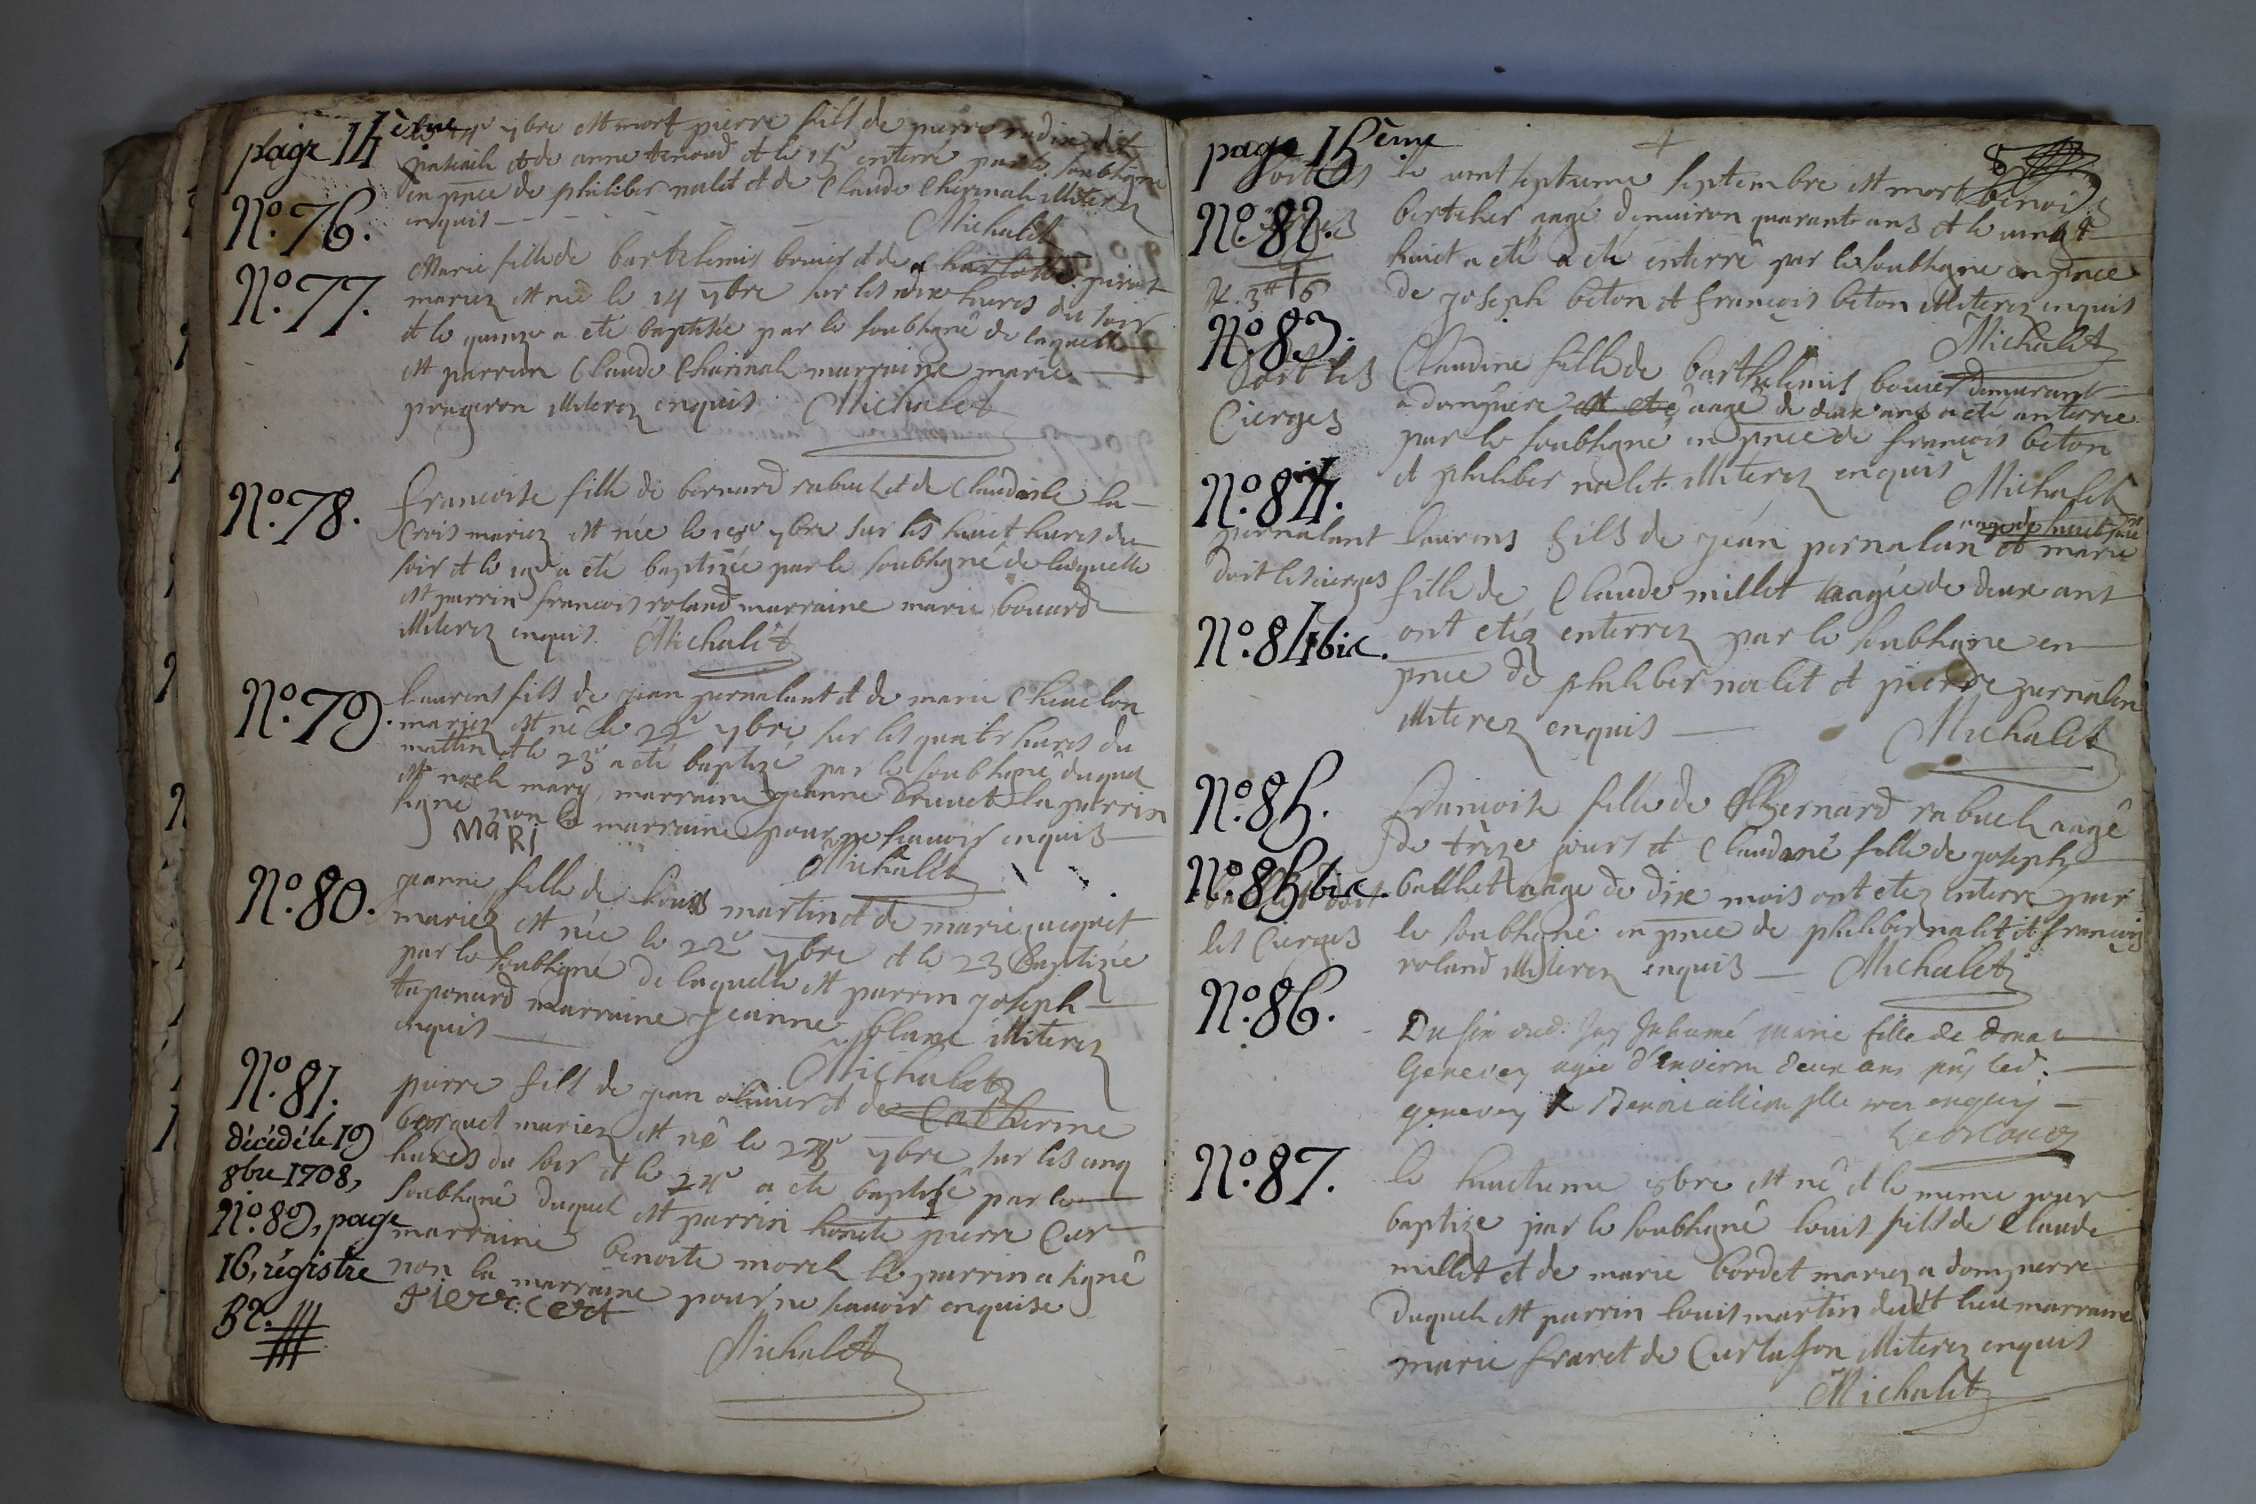 page 14ème
le 14e 7bre est mort pierre fils de pierre dit
et de anne et le 15e enterré par le soubsigné
en pnce de philiber nalet et de Claude Charinal illiterez
enquis
Michalet
No. 76.
No. 77.
Marie fille de bartelemis bouier et de
mariez est née le 14 7bre sur les heures du soir
et le quinze a eté baptisée par le soubsigné de laquelle
est parrein Claude Charinal marraine marie
prugeron illiterez enquis Michalet
No. 78.
francoise fille de bernard rabuel et de Claudine la
Crois mariez est née le 18e 7bre sur les huict heures du
soir et le 19e a eté baptizée par le soubsigné de laquelle
est parrin francois roland marraine marie bouard
illiterez enquis. Michalet
No. 79.
laurens fils de jean pernalant et de marie Chevelon
mariez est né le 22e 7bre sur les quatre heures du
mattin et le 23e a eté baptizé par le soubsigné duquel
est noel mary marraine jeanne la parrin
signé non la marraine pour ne scavoir enquis
MaRi
Michalet
No. 80.
jeanne fille de louis martin et de marie jacquet
mariez est née le 22e 7bre et le 23 baptizée
par le soubsigné de laquelle est parrin joseph
taponard marraine jeanne blanc illiterez
enquis
Michalet
No. 81.
pierre fils de jean olivier et de Catherine
borguet mariez est né le 7bre sur les cinq
heures du soir et le a ete baptisé par le
soubsigné duquel est parrin honete pierre Cer
marraine benoite morel le parrin a signé
non la marraine pour ne scavoir enquise
Pierre Cert
Michalet
décédé le 19
8bre 1708,
No. 89, page
16, régistre
B2.
page 15ème
8
doit les
cierges
No. 82.
le vint septieme septembre est mort benois
bertelier aagé denuiron quarante ans et le vint
huict a eté a eté enterré par le soubsigné en pnce
de joseph beton et françois beton illiterez enquis
Michalet
No. 83.
doit les
Cierges
Claudine fille de barthelemis bouier demurant
a dompierre est eté aagé de deux ans a eté anterrée
par le soubsigné en pnce de francois beton
et philiber nalet illiterez enquis
Michalet
No. 84.
pernalant
doit les cierges
aagé de huict jour
laurens fils de jean pernalan et marie
fille de Claude millet aagée de deux ans
No. 84 bis.
ont etéz enterrez par le soubsigné en
pnce de philiber nalet et pierre pernalan
illiterez enquis
Michalet
No. 85.
francoise fille de Bernard rabuel aagé
de trèze jours et Claudine fille de joseph
No. 85 bis.
doit
les Cierges
balthet aagé de dix mois ont etez enterré par
le soubsigné en pnce de philiber nalet et françois
roland illiterez enquis Michalet
No. 86.
Du sixe dud. Jay Inhumé marie fille de
Genevey agée d'environ deux ans pnts led.
genevey & Benoi illiterez enquis
No. 87.
le huictieme 8bre est né et le meme jour
baptizé par le soubsigné louis fils de Claude
millet et de marie bordet mariez a dompierre
duquel est parrin louis martin dudit lieu marraine
marie fraret de Curtafon illiterez enquis
Michalet